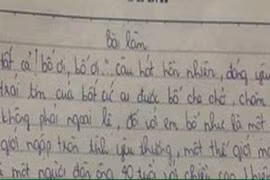 Bài làm
tất cả! bố ơi, bố ơi." câu hát hồn nhiên, đáng yêu
trái tim của bất cứ ai được bố che chở, chăm
không phải ngoại lệ, đối với em bố như là một
giới ngập tràn tình yêu thương, một thế giới mà
là một người đàn ông 40 tuổi với chiều cao